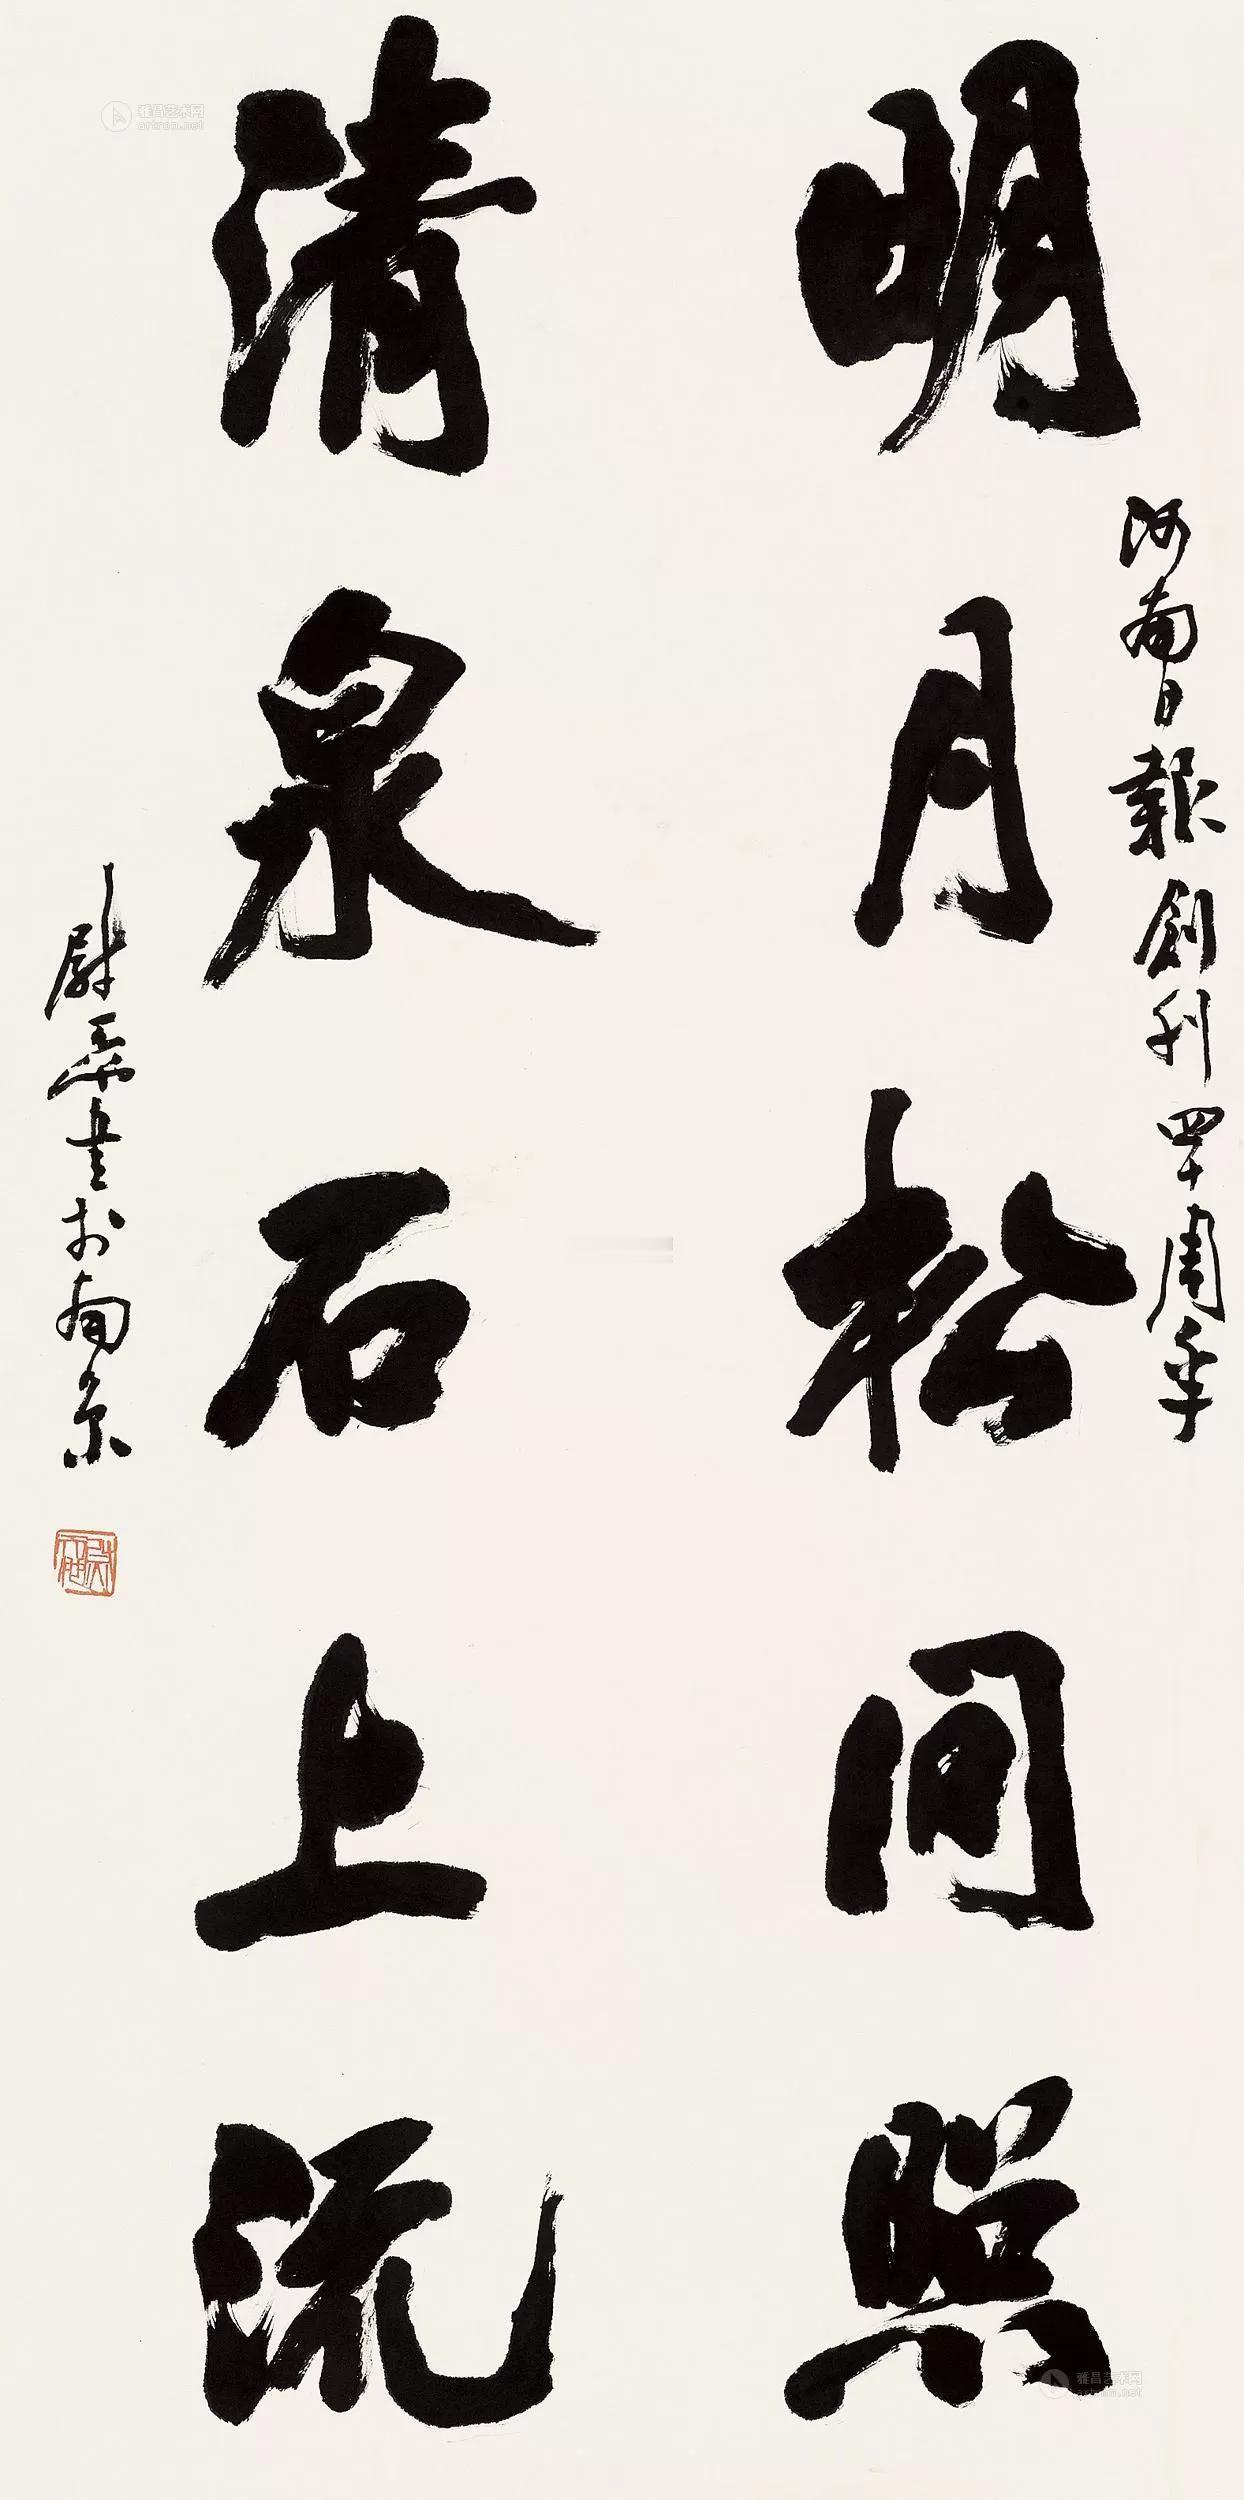 明月松间照
河南日報創刊四十周年
清泉石上流
尉天池書於南京
雅昌艺术网
artron.net
雅昌艺术网
artron.net